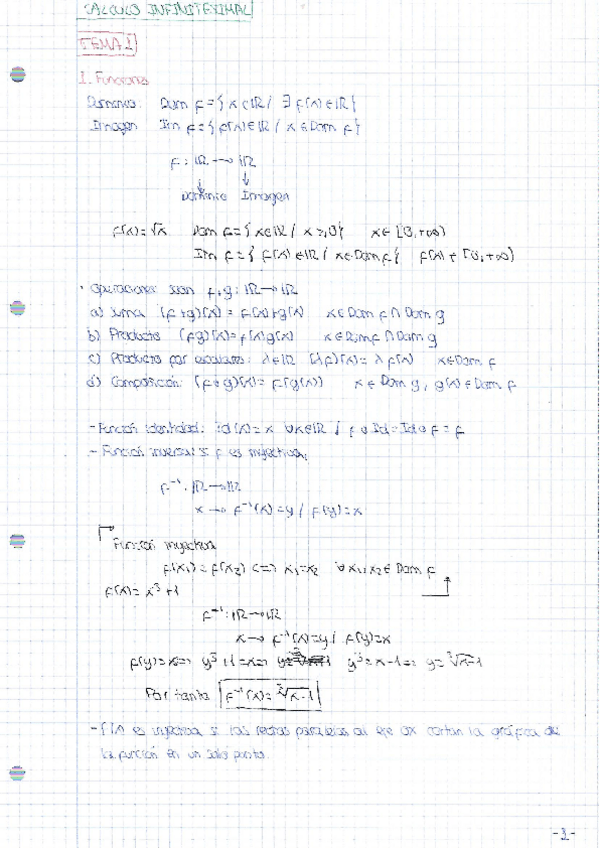 CALCULO INFINITEXIMAL
TEMA 1
1. Funciones
Dominio: Dom f = { x ∈ IR / ∃ f(x) ∈ IR }
Imagen Im f = { f(x) ∈ IR / x ∈ Dom f }
f : IR → IR
↓ ↓
Dominio Imagen
f(x) = √x Dom f = { x ∈ IR / x ≥ 0 } x ∈ [0, +∞)
Im f = { f(x) ∈ IR / x ∈ Dom f } f(x) ∈ [0, +∞)
· Operaciones sean f, g : IR → IR
a) Suma (f+g)(x) = f(x)+g(x) x ∈ Dom f ∩ Dom g
b) Producto (fg)(x) = f(x)g(x) x ∈ Dom f ∩ Dom g
c) Producto por escalares: λ ∈ IR (λf)(x) = λ f(x) x ∈ Dom f
d) Composición: (f∘g)(x) = f(g(x)) x ∈ Dom g, g(x) ∈ Dom f
- Función identidad: Id(x) = x ∀x ∈ IR / f ∘ Id = Id ∘ f = f
- Función inversa: si f es inyectiva,
f⁻¹ : IR → IR
x → f⁻¹(x) = y / f(y) = x
Función inyectiva
f(x₁) = f(x₂) <=> x₁ = x₂ ∀ x₁, x₂ ∈ Dom f
f(x) = x³ + 1
f⁻¹ : IR → IR
x → f⁻¹(x) = y / f(y) = x
f(y) = x => y³ + 1 = x => y³ = x - 1 => y = ³√x-1
Por tanto f⁻¹(x) = ³√x-1
- f(x) es inyectiva si las rectas paralelas al eje OX cortan la gráfica de
la función en un solo punto.
-1-